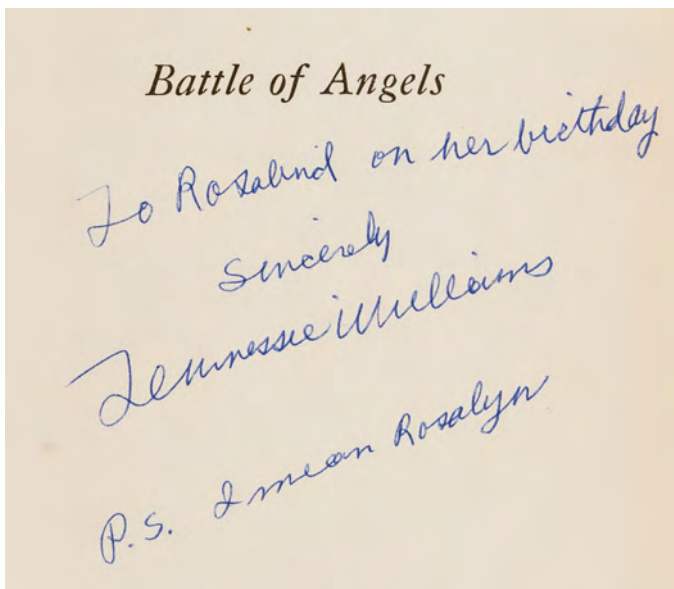 Battle of Angels
To Rosalind on her birthday
Sincerely
Tennessee Williams
P.S. I mean Rosalyn